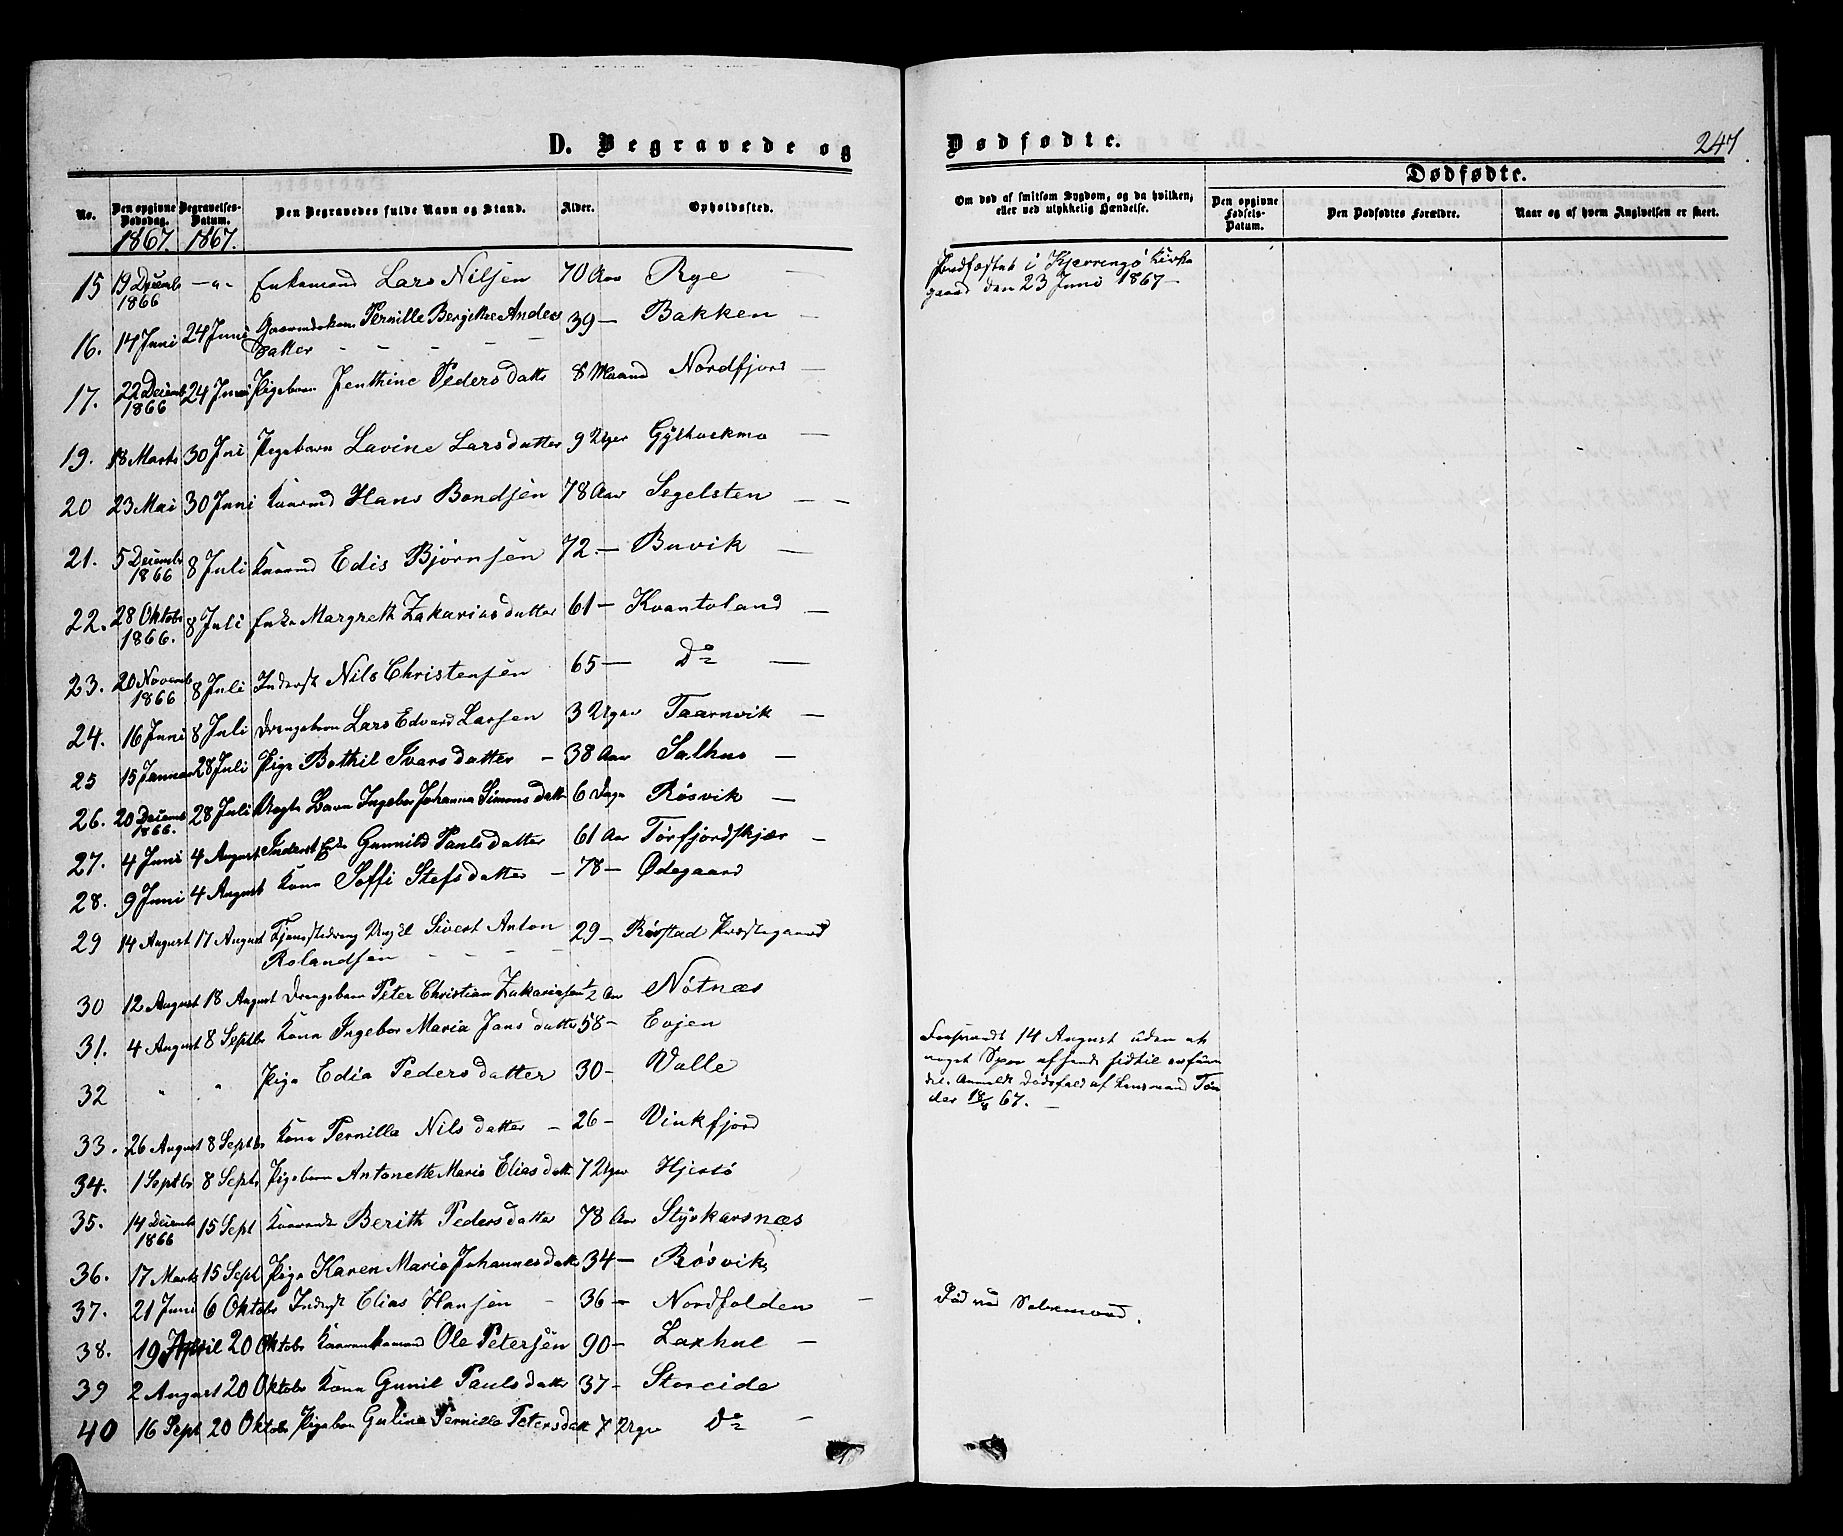 D. Begravede og
Dødfødte.
247.
No.
Den opgivne Dødsdag. 1867.
Begravelses-Datum. 1867.
Den Begravedes fulde Navn og Stand.
Alder.
Opholdssted.
Om død af smitsom Sygdom, og da hvilken; eller ved ulykkelig Hændelse.
Dødfødte.
Den opgivne Fødsels-Datum.
Den Dødfødtes Forældre.
Naar og af hvem Angivelsen er skeet.
15 19 Decemb 1866 —"— Enkemand Lars Nilsen 70 Aar Rye —
Jordfæstet i Kjerringø Kirke
gaard den 23 Juni 1867 —
16. 14 Juni 24 Juni Gaardmdskone Pernille Bergitte Anders
datter — — — — 39 — Bakken —
17. 22 Decemb 1866 24 Juni Pigebarn Jenthine Pedersdatte 8 Maaned Nordfjord —
19. 18 Marts 30 Juni Pigebarn Lavine Larsdatter 9 Uger Gylthockmo —
20 23 Mai 30 Juni Kaarmd Hans Bendsen 78 Aar Segelsten — —
21. 5 Decemb 1866 8 Juli Kaarmd Edis Bjørnsen 72. — Buvik —
22. 28 Oktobr 1866. 8 Juli Enke Margreth Zakariasdatter 61 — Kvantoland —
23. 20 Novemb 1866 8 Juli Inderst Nils Christensen 65 — Do —
24. 16 Juni 8 Juli Drengebarn Lars Edvard Larsen 3 Uger Taarnvik —
25 15 Januar 28 Juli Pige Bothil Ivarsdatter — 38 Aar Salhus —
26. 20 Decemb 1866. 28 Juli Uægte Barn Ingebor Johanna Simonsdatte 6 Dage Røsvik —
27. 4 Juni 4 August Inderst Enke Gunnild Paulsdatter 61 Aar Tørfjordskjær —
28. 9 Juni 4 August Kone Soffi Stefsdatter — 78 — Ødegaard
29 14 August 17 August Tjenestedreng Ungkl Sivert Anton
Rolandsen — — — 29 — Rørstad Præstegaard
30 12 August 18 August Drengebarn Peter Christian Zakariassen ½ Aar Nötnæs
31. 4 August 8 Septbr Kone Ingebor Maria Jansdatter 58 — Evjen
32 " " Pige Edia Pedersdatter 30 — Valle
Forsvandt 14 August uden at
noget Spor af hende hidtil er fun
det. Anmeldt Dødsfald af Lensmand Tøn
der 18/8 67. —
33. 26 August 8 Septbr Kone Pernilla Nilsdatter — 26 — Vinkfjord
34. 1 Septbr 8 Septbr Pigebarn Antonette Maria Eliasdatt 7 Uger Hjertø
35. 14 Decemb 1866 15 Sept Kaarenke Berith Pedersdatter 78 Aar Styrkarsnæs
36. 17 Marts 15 Sept Pige Karen Maria Johannesdatt 34 — Røsvik
37. 21 Juni 6 Oktobr Inderst Elias Hansen — 36 — Nordfolden —
Død ved
38. 19 April 20 Oktobr Kaarenkemand Ole Petersen 90 — Laxhul —
39 2 August 20 Oktobr Kone Gunil Paulsdatter 37 — Storeide
40 16 Sept 20 Oktobr Pigebarn Guline Pernilla Petersdatt 7 Uger Do —